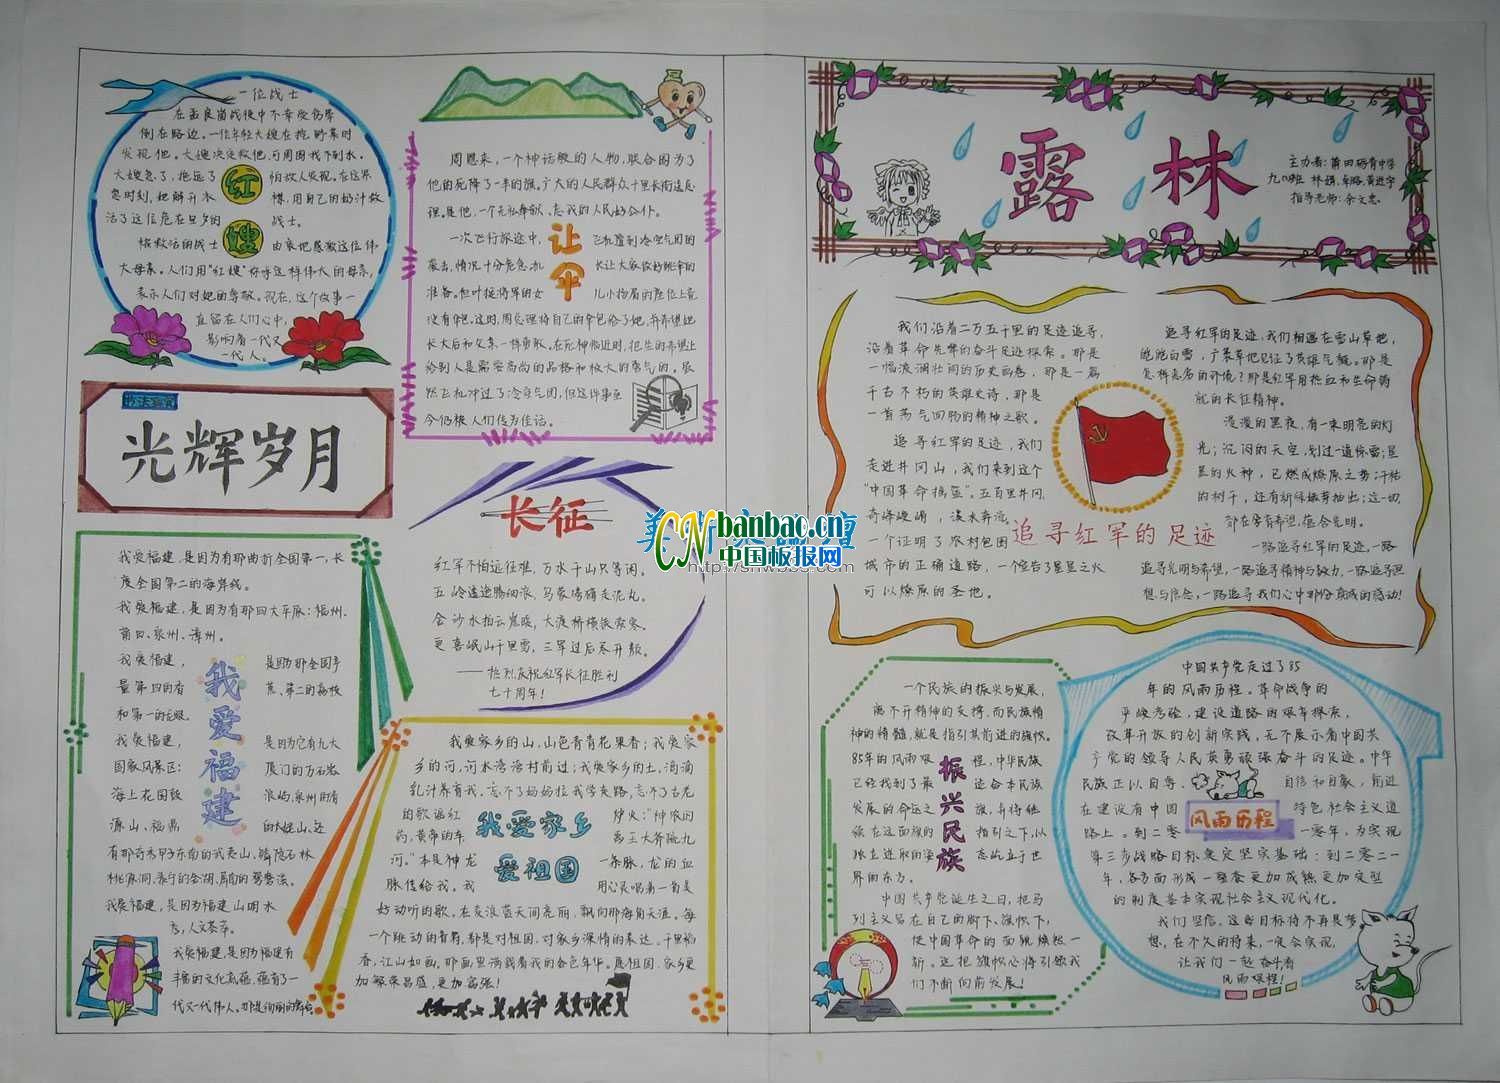 露林
主办者：莆田砺青中学
指导老师：余文忠
一位战士
在孟良崮战役中不幸受伤晕
倒在路边。一位年轻大嫂在挖野菜时
发现他。大嫂决定救他，可周围找不到水。
红嫂
活了这位危在旦夕的战士。
被救活的战士由衷地感激这位伟
大母亲。人们用“红嫂”称呼这样伟大的母亲，
表示人们对她的尊敬。现在，这个故事一
直留在人们心中，
影响着一代又
一代人。
周恩来，一个神话般的人物，联合国为了
他的死降了一半的旗。广大的人民群众十里长街送总
理。是他，一个无私奉献、忘我的人民好公仆。
让伞
一次飞行旅途中，飞机遭到冷空气团的
袭击，情况十分危急，机长让大家做好跳伞的
准备。但叶挺将军的女儿小扬眉的座位上竟
没有伞包。这时，周总理将自己的伞包给了她，并希望她
长大后和父亲一样勇敢。在死神临近时，把生的希望让
给别人是需要高尚的品格和极大的勇气的。虽
然飞机冲过了冷空气团，但这件事至
今仍被人们传为佳话。
光辉岁月
长征
红军不怕远征难，万水千山只等闲。
五岭逶迤腾细浪，乌蒙磅礴走泥丸。
金沙水拍云崖暖，大渡桥横铁索寒。
更喜岷山千里雪，三军过后尽开颜。
——热烈庆祝红军长征胜利
七十周年！
我爱福建，是因为有那曲折全国第一，长
度全国第二的海岸线。
我爱福建，是因为有那四大平原：福州、
莆田、泉州、漳州。
我爱福建
我爱福建，是因为福建山明水
秀，人文荟萃。
我爱福建，是因为福建有
丰富的文化底蕴，蕴育了一
我爱家乡的山，山色青青花果香；我爱家
乡的河，河水湾湾村前过；我爱家乡的土，滴滴
乳汁养育我。忘不了妈妈拉我学走路，忘不了古老
我爱家乡
爱祖国
好动听的歌。在麦浪蓝天间亮丽，飘向那海角天涯。每
一个跳动的音符，都是对祖国、对家乡深情的表达。千里稻
香，江山如画，那画里满载着我的金色年华。愿祖国、家乡更
加繁荣昌盛，更加富强！
我们沿着二万五千里的足迹追寻，
沿着革命先辈的奋斗足迹探索。那是
一幅波澜壮阔的历史画卷，那是一篇
千古不朽的英雄史诗，那是
一首荡气回肠的精神之歌。
追寻红军的足迹，我们
走进井冈山，我们来到这个
“中国革命摇篮”。五百里井冈，
奇峰峻峭，溪水奔流。
一个证明了农村包围
城市的正确道路，一个宣告了星星之火
可以燎原的圣地。
追寻红军的足迹
追寻红军的足迹，我们相遇在雪山草地，
皑皑白雪，广袤草地见证了英雄气概。那是
怎样恶劣的环境？那是红军用热血和生命铸
就的长征精神。
漫漫的黑夜，有一束明亮的灯
光；沉闷的天空，划过一道惊雷；星
星的火种，已燃成燎原之势；干枯
的树干，还有新绿嫩芽抽出；这一切
都在孕育希望，蕴含光明。
一路追寻红军的足迹，一路
追寻光明与希望，一路追寻精神与毅力，一路追寻思
想与信念，一路追寻我们心中那份真诚的感动！
一个民族的振兴与发展，
离不开精神的支撑，而民族精
神的精髓，就是指引其前进的旗帜。
振兴民族
中国共产党诞生之日，把马
列主义写在自己的脚下、旗帜下，
使中国革命的面貌焕然一
新。这把旗帜必将引领我
们不断向前发展！
中国共产党走过了85
年的风雨历程。革命战争的
严峻考验，建设道路的艰辛探索，
改革开放的创新实践，无不展示着中国共
产党的领导人民英勇顽强奋斗的足迹。中华
民族正以自尊、自信和自豪，前进
在建设有中国特色社会主义道
路上。到二零一零年，为实现
第三步战略目标奠定坚实基础；到二零二一
年，各方面形成一整套更加成熟更加定型
的制度基本实现社会主义现代化。
风雨历程
我们坚信，这些目标将不再是梦
想，在不久的将来，一定会实现。
让我们一起奋斗看
风雨历程！
CN banbao.cn
中国板报网